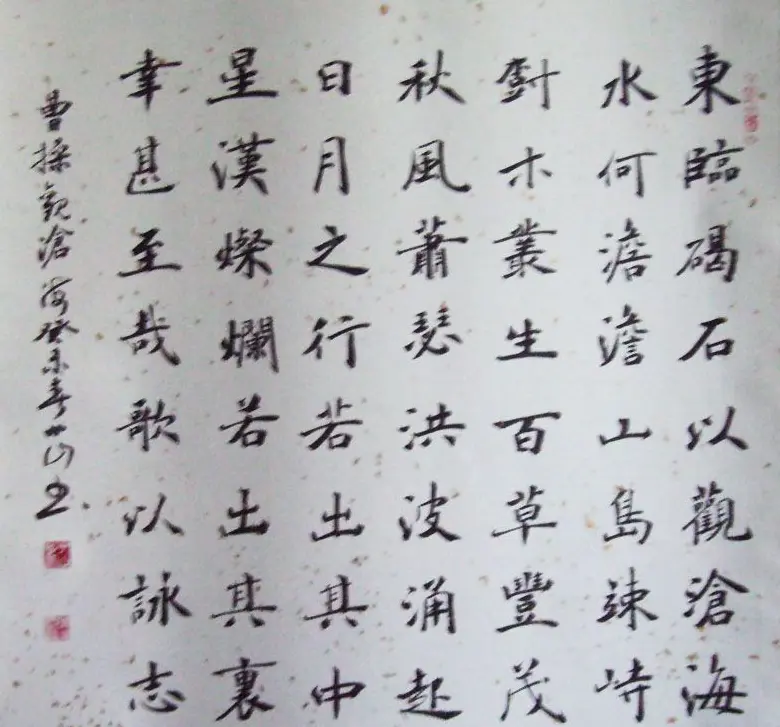 東臨碣石以觀滄海
水何澹澹山島竦峙
對木叢生百草豐茂
秋風蕭瑟洪波涌起
日月之行若出其中
星漢燦爛若出其裏
幸甚至哉歌以詠志
曹操觀滄海癸未春